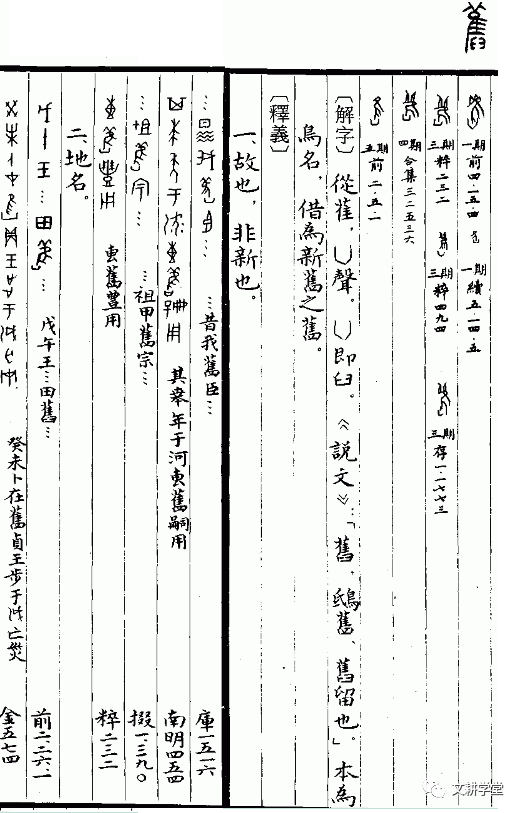 舊
一期前四·一五·四 一期續五·一四·五
三期粹二三二 三期粹四九四 三期存一·一七七三
四期合集三二五三六
五期前二·五·一
〔解字〕從萑，凵聲。凵即臼。《說文》：「舊，鴟舊，舊留也」。本為
鳥名，借為新舊之舊。
〔釋義〕
一、故也，非新也。
…昔我舊臣… 庫一五一六
其年于河叀舊用 南明四五四
…祖甲舊宗… 掇一·三九〇
叀舊豐用 粹二三二
二、地名。
戊午王…田舊… 前二·二六·一
癸未卜在舊貞王步于亡災 金五七四
文耕学堂